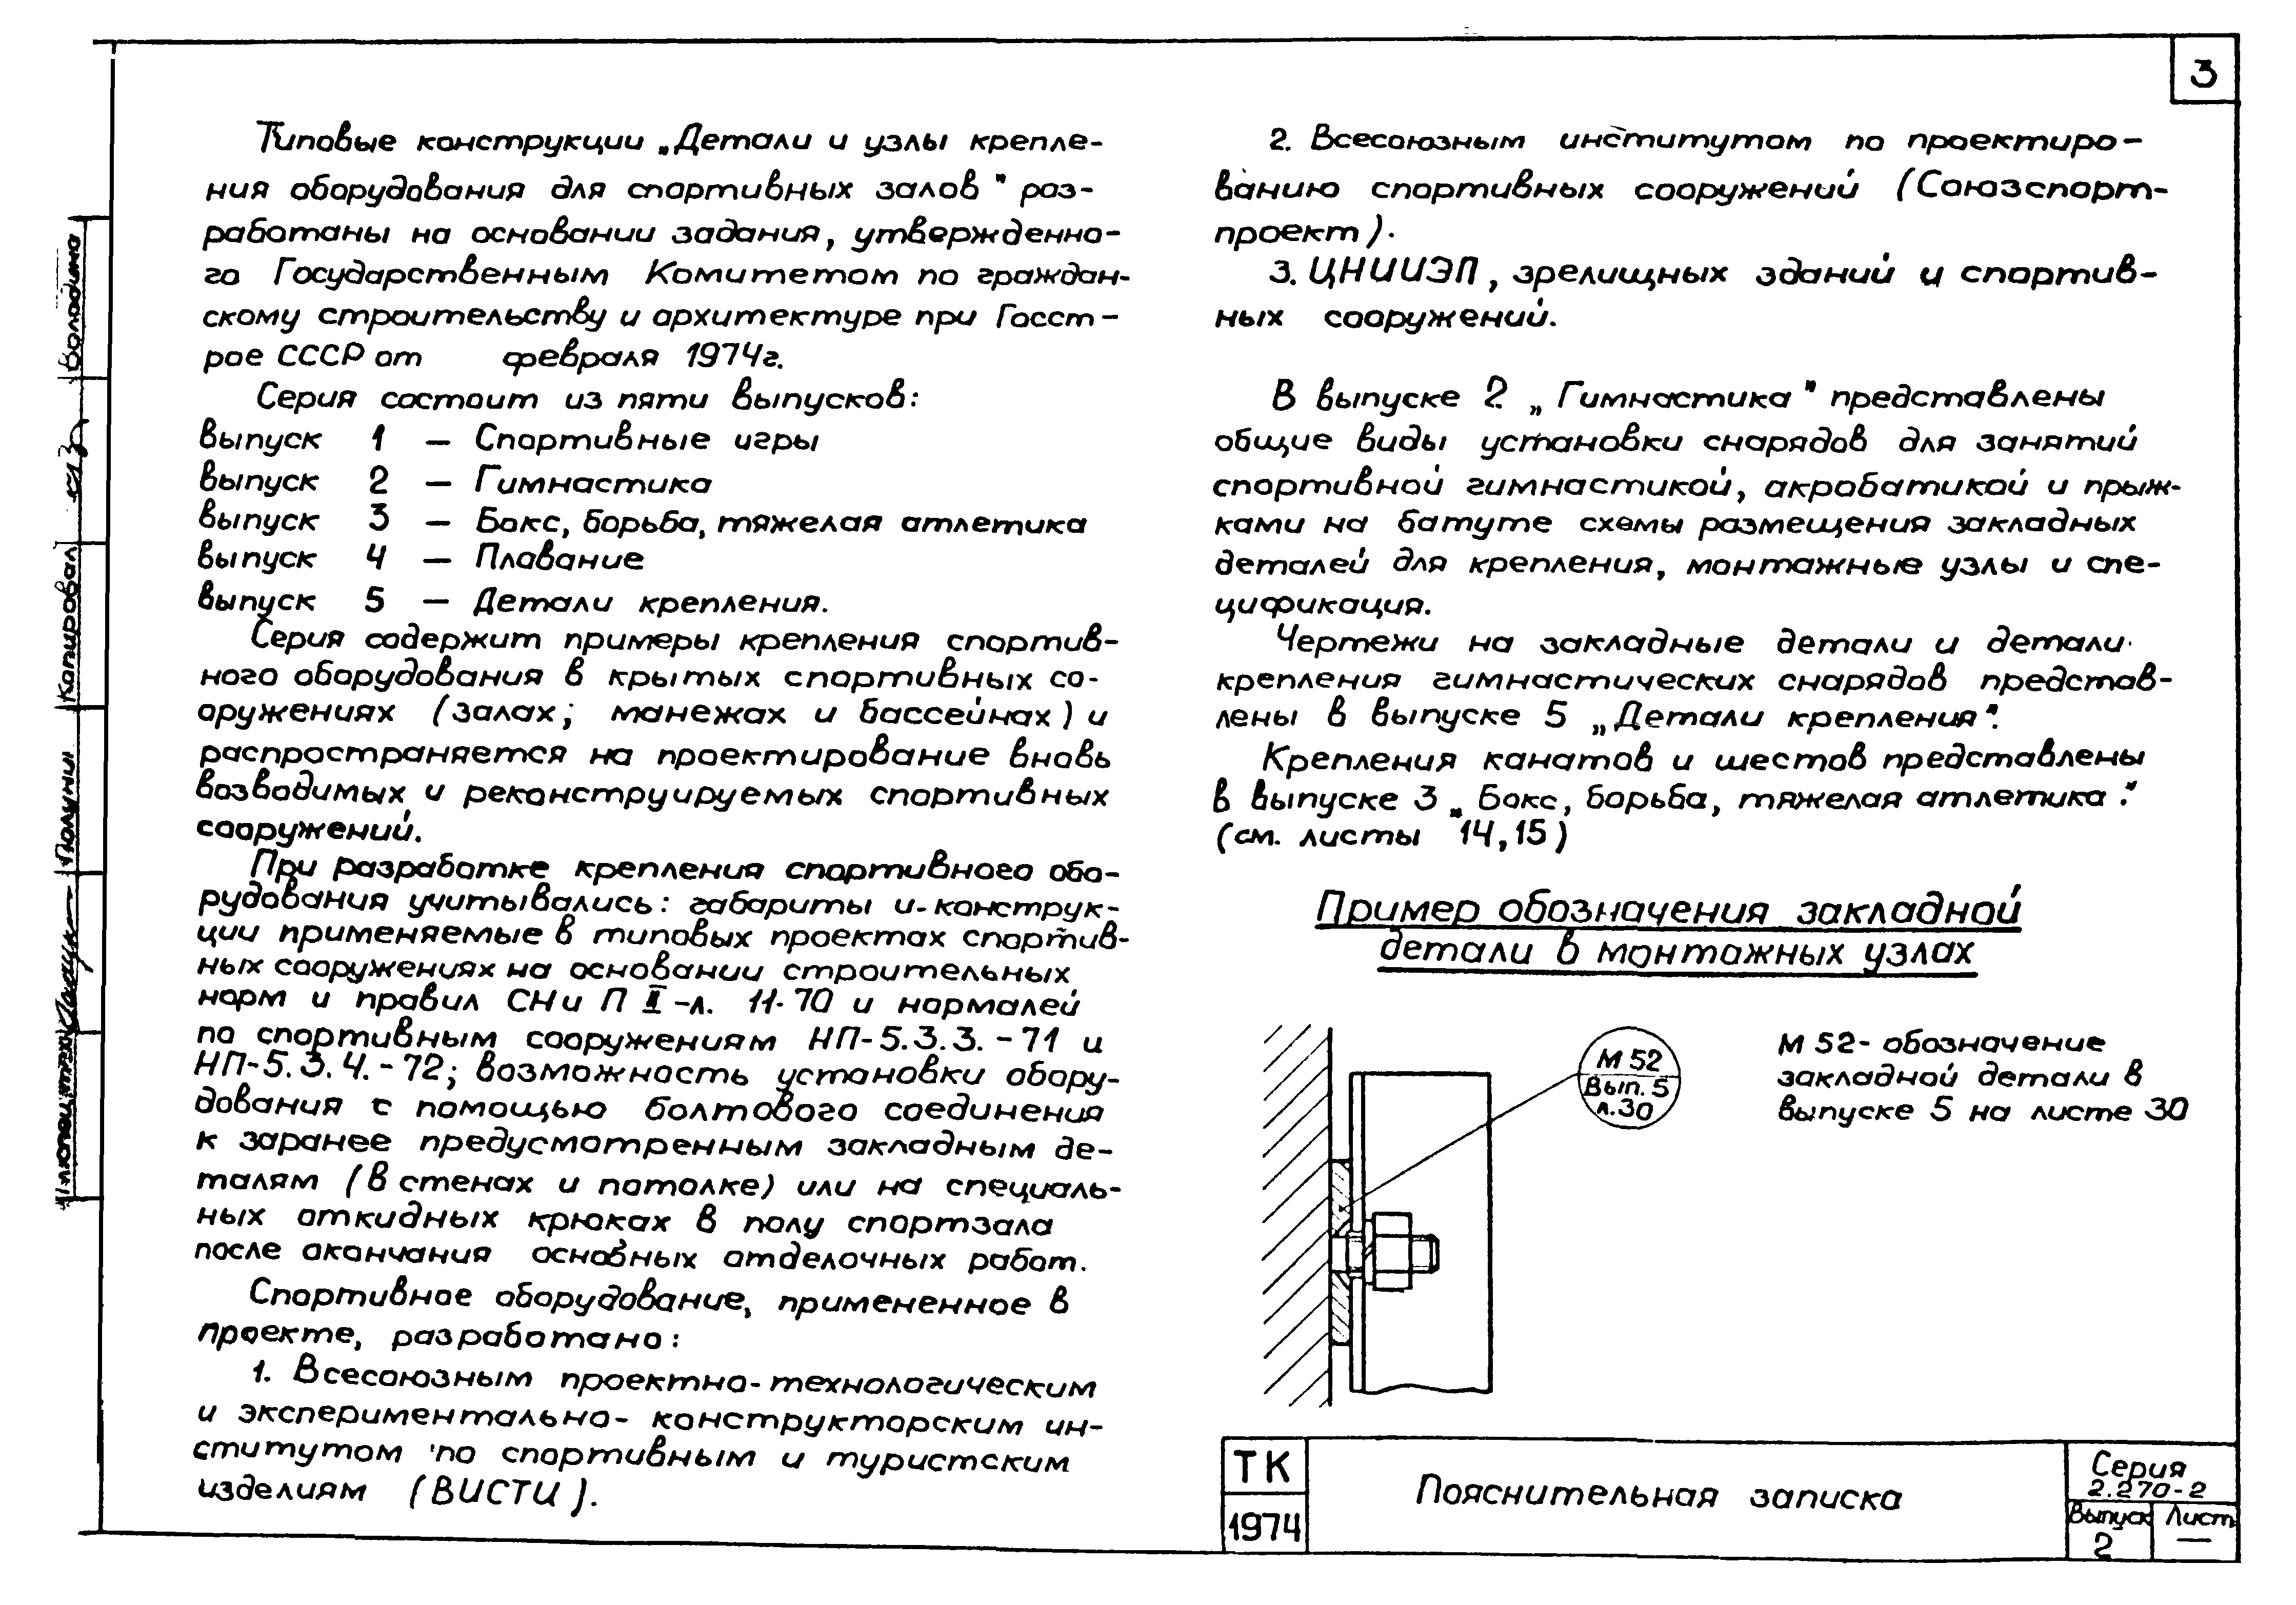 3
Типовые конструкции „Детали и узлы крепле-
ния оборудования для спортивных залов" раз-
работаны на основании задания, утвержденно-
го Государственным Комитетом по граждан-
скому строительству и архитектуре при Госст-
рое СССР от февраля 1974г.
Серия состоит из пяти выпусков:
выпуск 1 – Спортивные игры
выпуск 2 – Гимнастика
выпуск 3 – Бокс, борьба, тяжелая атлетика
выпуск 4 – Плавание
выпуск 5 – Детали крепления.
Серия содержит примеры крепления спортив-
ного оборудования в крытых спортивных со-
оружениях (залах; манежах и бассейнах) и
распространяется на проектирование вновь
возводимых и реконструируемых спортивных
сооружений.
При разработке крепления спортивного обо-
рудования учитывались: габариты и-конструк-
ции применяемые в типовых проектах спортив-
ных сооружениях на основании строительных
норм и правил СНиП II-л. 11-70 и нормалей
по спортивным сооружениям НП-5.3.3.-71 и
НП-5.3.4.-72; возможность установки обору-
дования с помощью болтового соединения
к заранее предусмотренным закладным де-
талям (в стенах и потолке) или на специаль-
ных откидных крюках в полу спортзала
после окончания основных отделочных работ.
Спортивное оборудование, примененное в
проекте, разработано:
1. Всесоюзным проектно-технологическим
и экспериментально-конструкторским ин-
ститутом по спортивным и туристским
изделиям (ВИСТИ).
2. Всесоюзным институтом по проектиро-
ванию спортивных сооружений (Союзспорт-
проект).
3. ЦНИИЭП, зрелищных зданий и спортив-
ных сооружений.
В выпуске 2 „Гимнастика" представлены
общие виды установки снарядов для занятий
спортивной гимнастикой, акробатикой и прыж-
ками на батуте схемы размещения закладных
деталей для крепления, монтажные узлы и спе-
цификация.
Чертежи на закладные детали и детали
крепления гимнастических снарядов представ-
лены в выпуске 5 „Детали крепления".
Крепления канатов и шестов представлены
в выпуске 3 „Бокс, борьба, тяжелая атлетика".
(см. листы 14,15)
Пример обозначения закладной
детали в монтажных узлах
М 52
Вып. 5
л.30
М 52- обозначение
закладной детали в
выпуске 5 на листе 30
ТК
1974
Пояснительная записка
Серия
2.270-2
Выпуск
2
Лист
—
Володина
Копировал